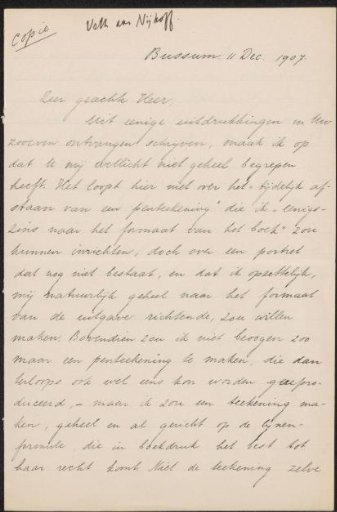 Copie
Veth aan Nijhoff.
Bussum 11 Dec 1907.
Zeer geachte Heer,
Uit eenige uitdrukkingen in Uw
zooeven ontvangen schrijven, maak ik op
dat U mij wellicht niet geheel begrepen
heeft. Het loopt hier niet over het "tijdelijk af-
staan van een penteekening" die ik "eenigs-
zins naar het formaat van het boek" zou
kunnen inrichten, doch over een portret
dat nog niet bestaat, en dat ik opzettelijk,
mij natuurlijk geheel naar het formaat
van de uitgave richtende, zou willen
maken. Bovendien zou ik niet beoogen zoo
maar een penteekening te maken, die dan
terloops ook wel eens kon worden gerepro-
duceerd, - maar ik zou een teekening ma-
ken, geheel en al gericht op de lijnen-
formule, die in boekdruk het best tot
haar recht komt. Niet de teekening zelve